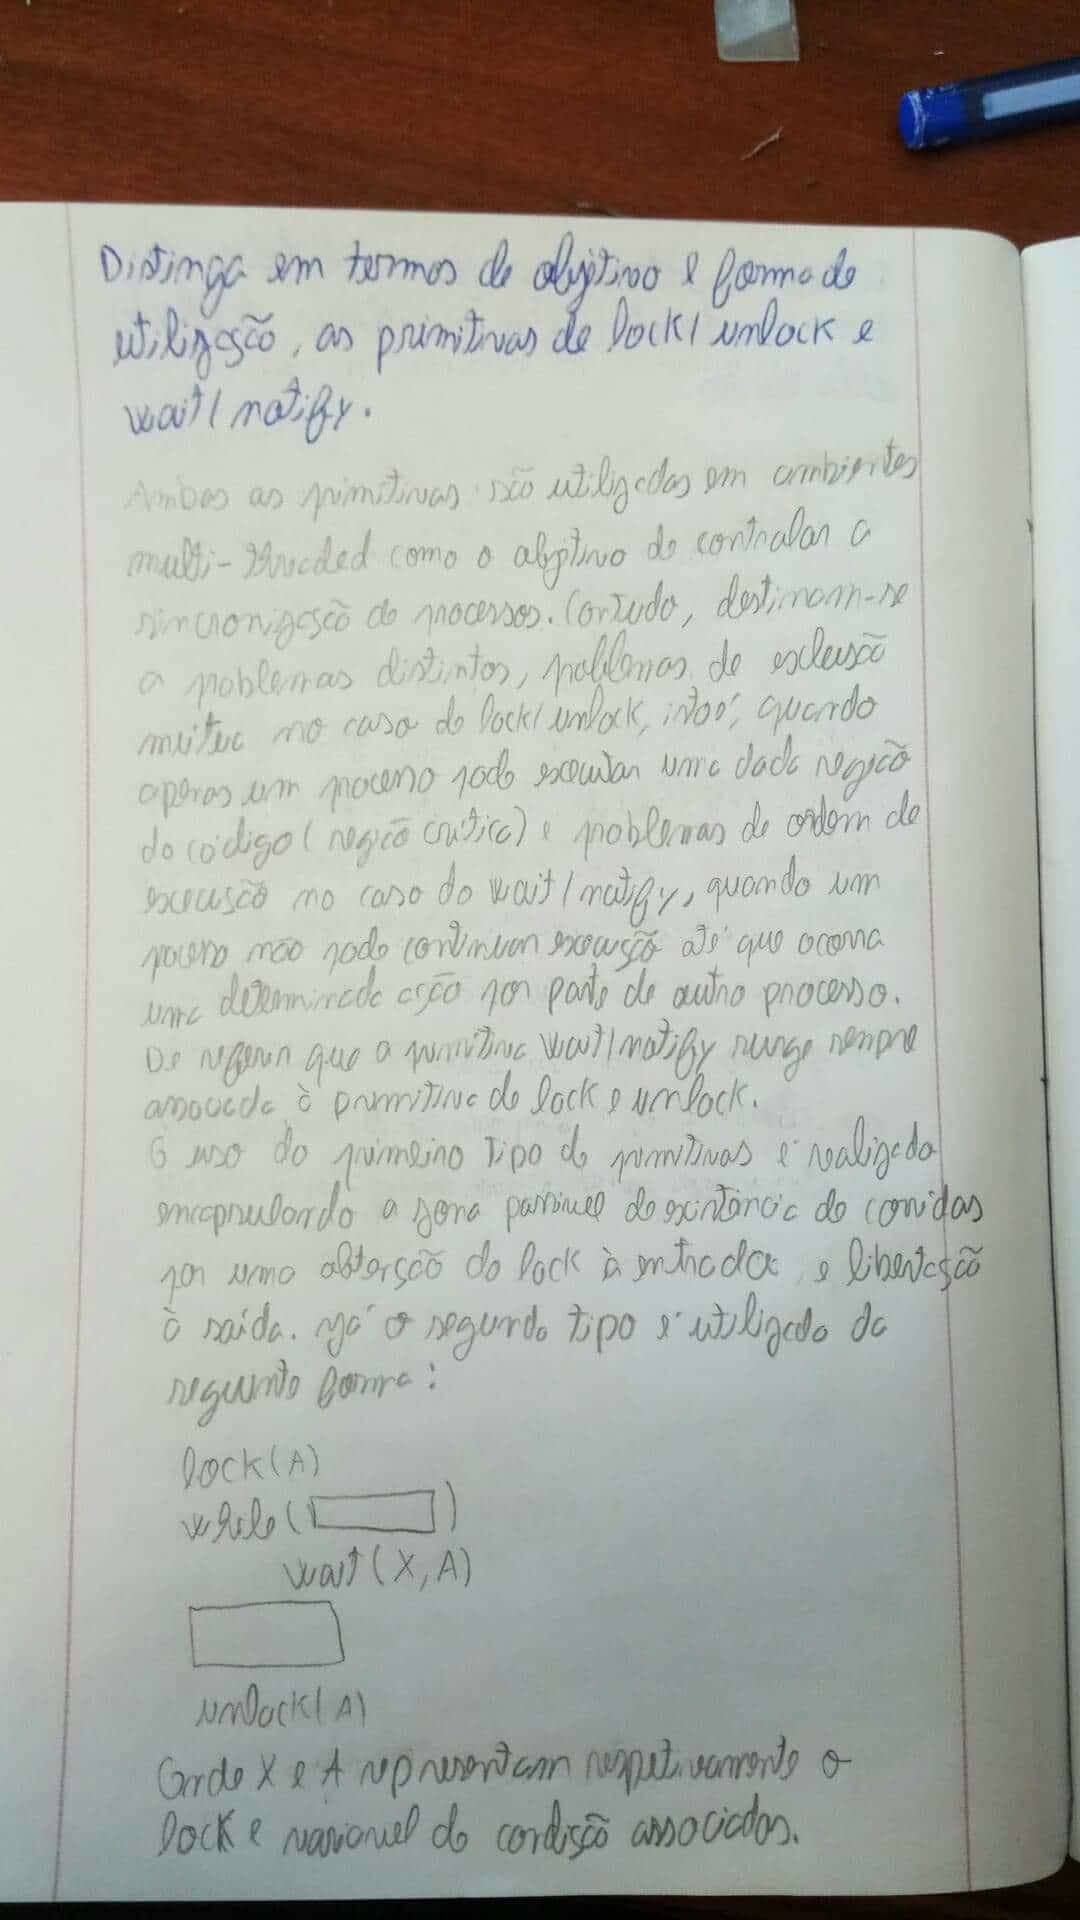 Distinga em termos de objetivo e forma de
utilização, as primitivas de lock/unlock e
wait/notify.
Ambas as primitivas são utilizadas em ambientes
multi-threaded como o objetivo de controlar a
sincronização de processos. Contudo, destinam-se
a problemas distintos, problemas de exclusão
mutua no caso do lock/unlock, isto é, quando
apenas um processo pode executar uma dada região
do código (região crítica) e problemas de ordem de
execução no caso do wait/notify, quando um
processo não pode continuar execução até que ocorra
uma determinada ação por parte de outro processo.
De referir que a primitiva wait/notify surge sempre
associada à primitiva de lock e unlock.
O uso do primeiro tipo de primitivas é realizado
encapsulando a zona passivel de existência de corridas
por uma obtenção do lock à entrada e libertação
à saída. Já o segundo tipo é utilizado da
seguinte forma:
lock(A)
while( )
wait(X, A)
unlock(A)
Onde X e A representam respetivamente o
lock e variavel de condição associados.